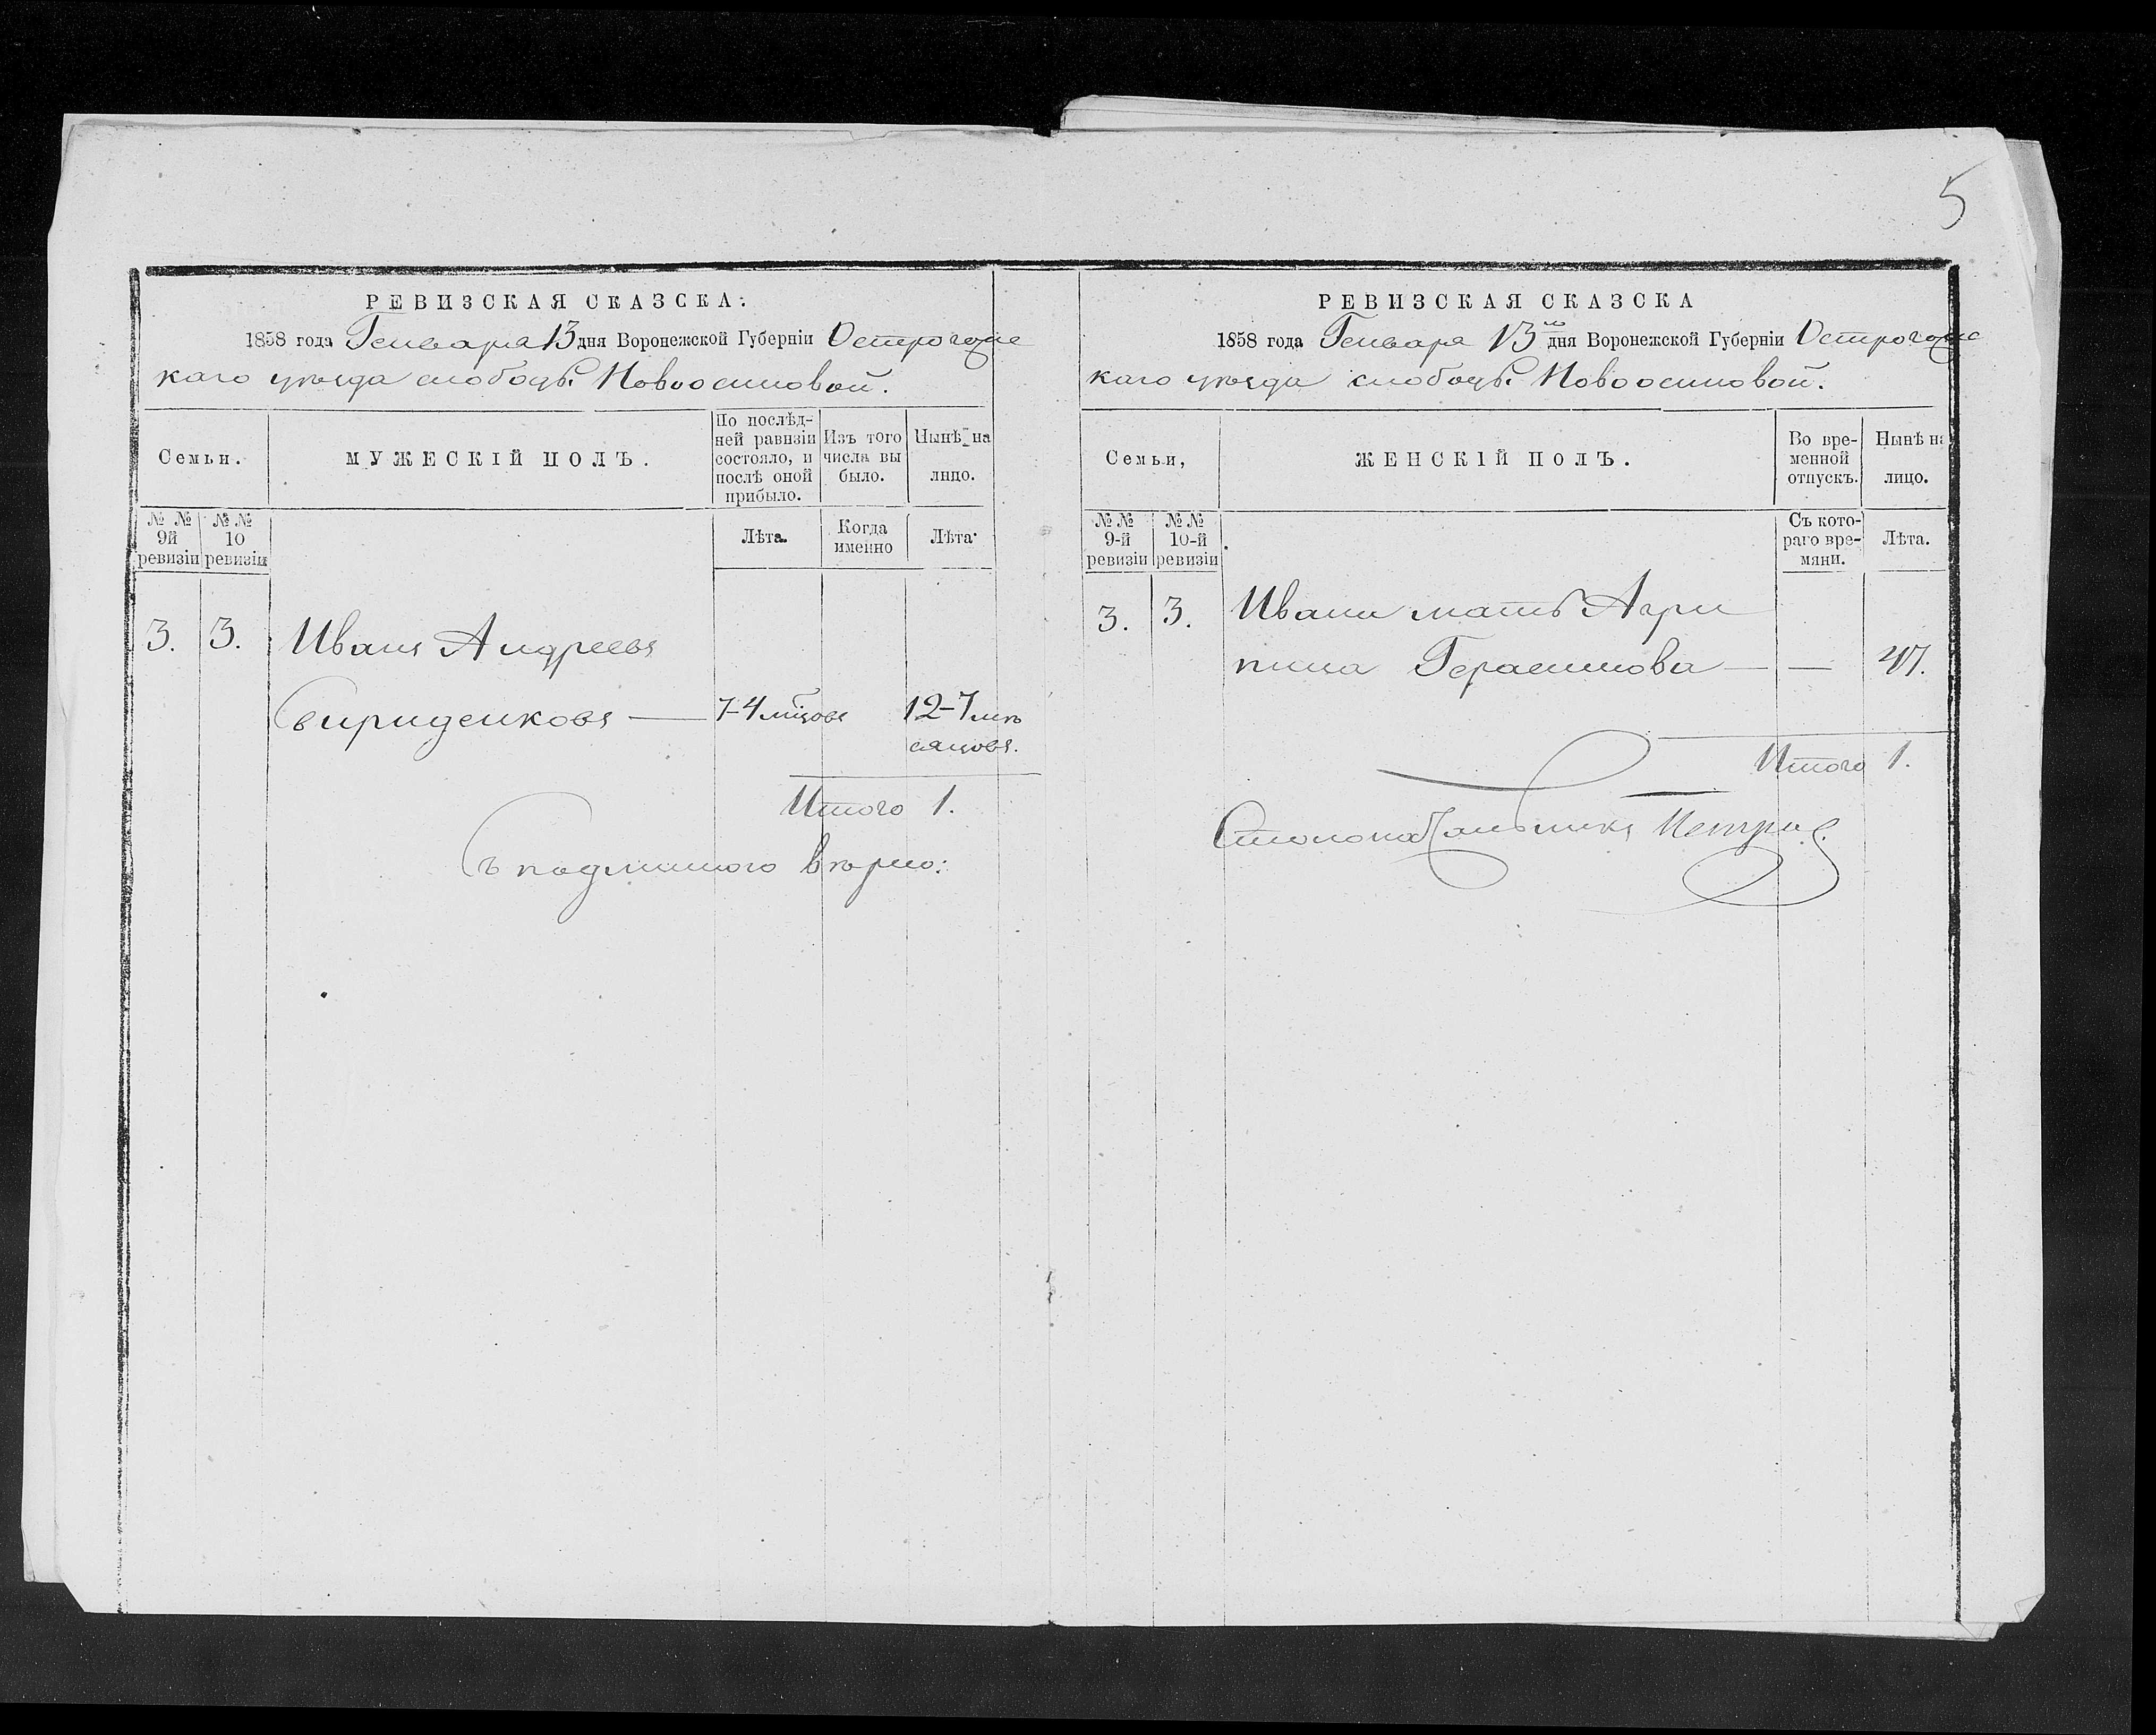 5
РЕВИЗСКАЯ СКАЗСКА.
1858 года Генваря 13 дня Воронежской Губерніи Острогожс
каго уѣзда слободы Новоосиновой.
Семьи.
МУЖЕСКІЙ ПОЛЪ.
По послѣд-
ней равизіи
состояло, и
послѣ оной
прибыло.
Изъ того
числа вы
было.
Нынѣ на
лицо.
№ №
9й
ревизіи
№ №
10
ревизіи
Лѣта.
Когда
именно
Лѣта.
3. 3. Иванъ Андреевъ
Свириденковъ — 7-4 мцовъ 12-7 мѣ
сяцовъ.
Итого 1.
Съ подлиннымъ вѣрно:
РЕВИЗСКАЯ СКАЗСКА
1858 года Генваря 13 дня Воронежской Губерніи Острогожс
каго уѣзда слободы Новоосиновой.
Семьи,
ЖЕНСКІЙ ПОЛЪ.
Во вре-
менной
отпускъ.
Нынѣ на
лицо.
№ №
9-й
ревизіи
№ №
10-й
ревизіи
Съ кото-
раго вре-
мяни.
Лѣта.
3. 3. Ивана мать Агри
пина Герасимова — — 47.
Итого 1.
Столоначальникъ